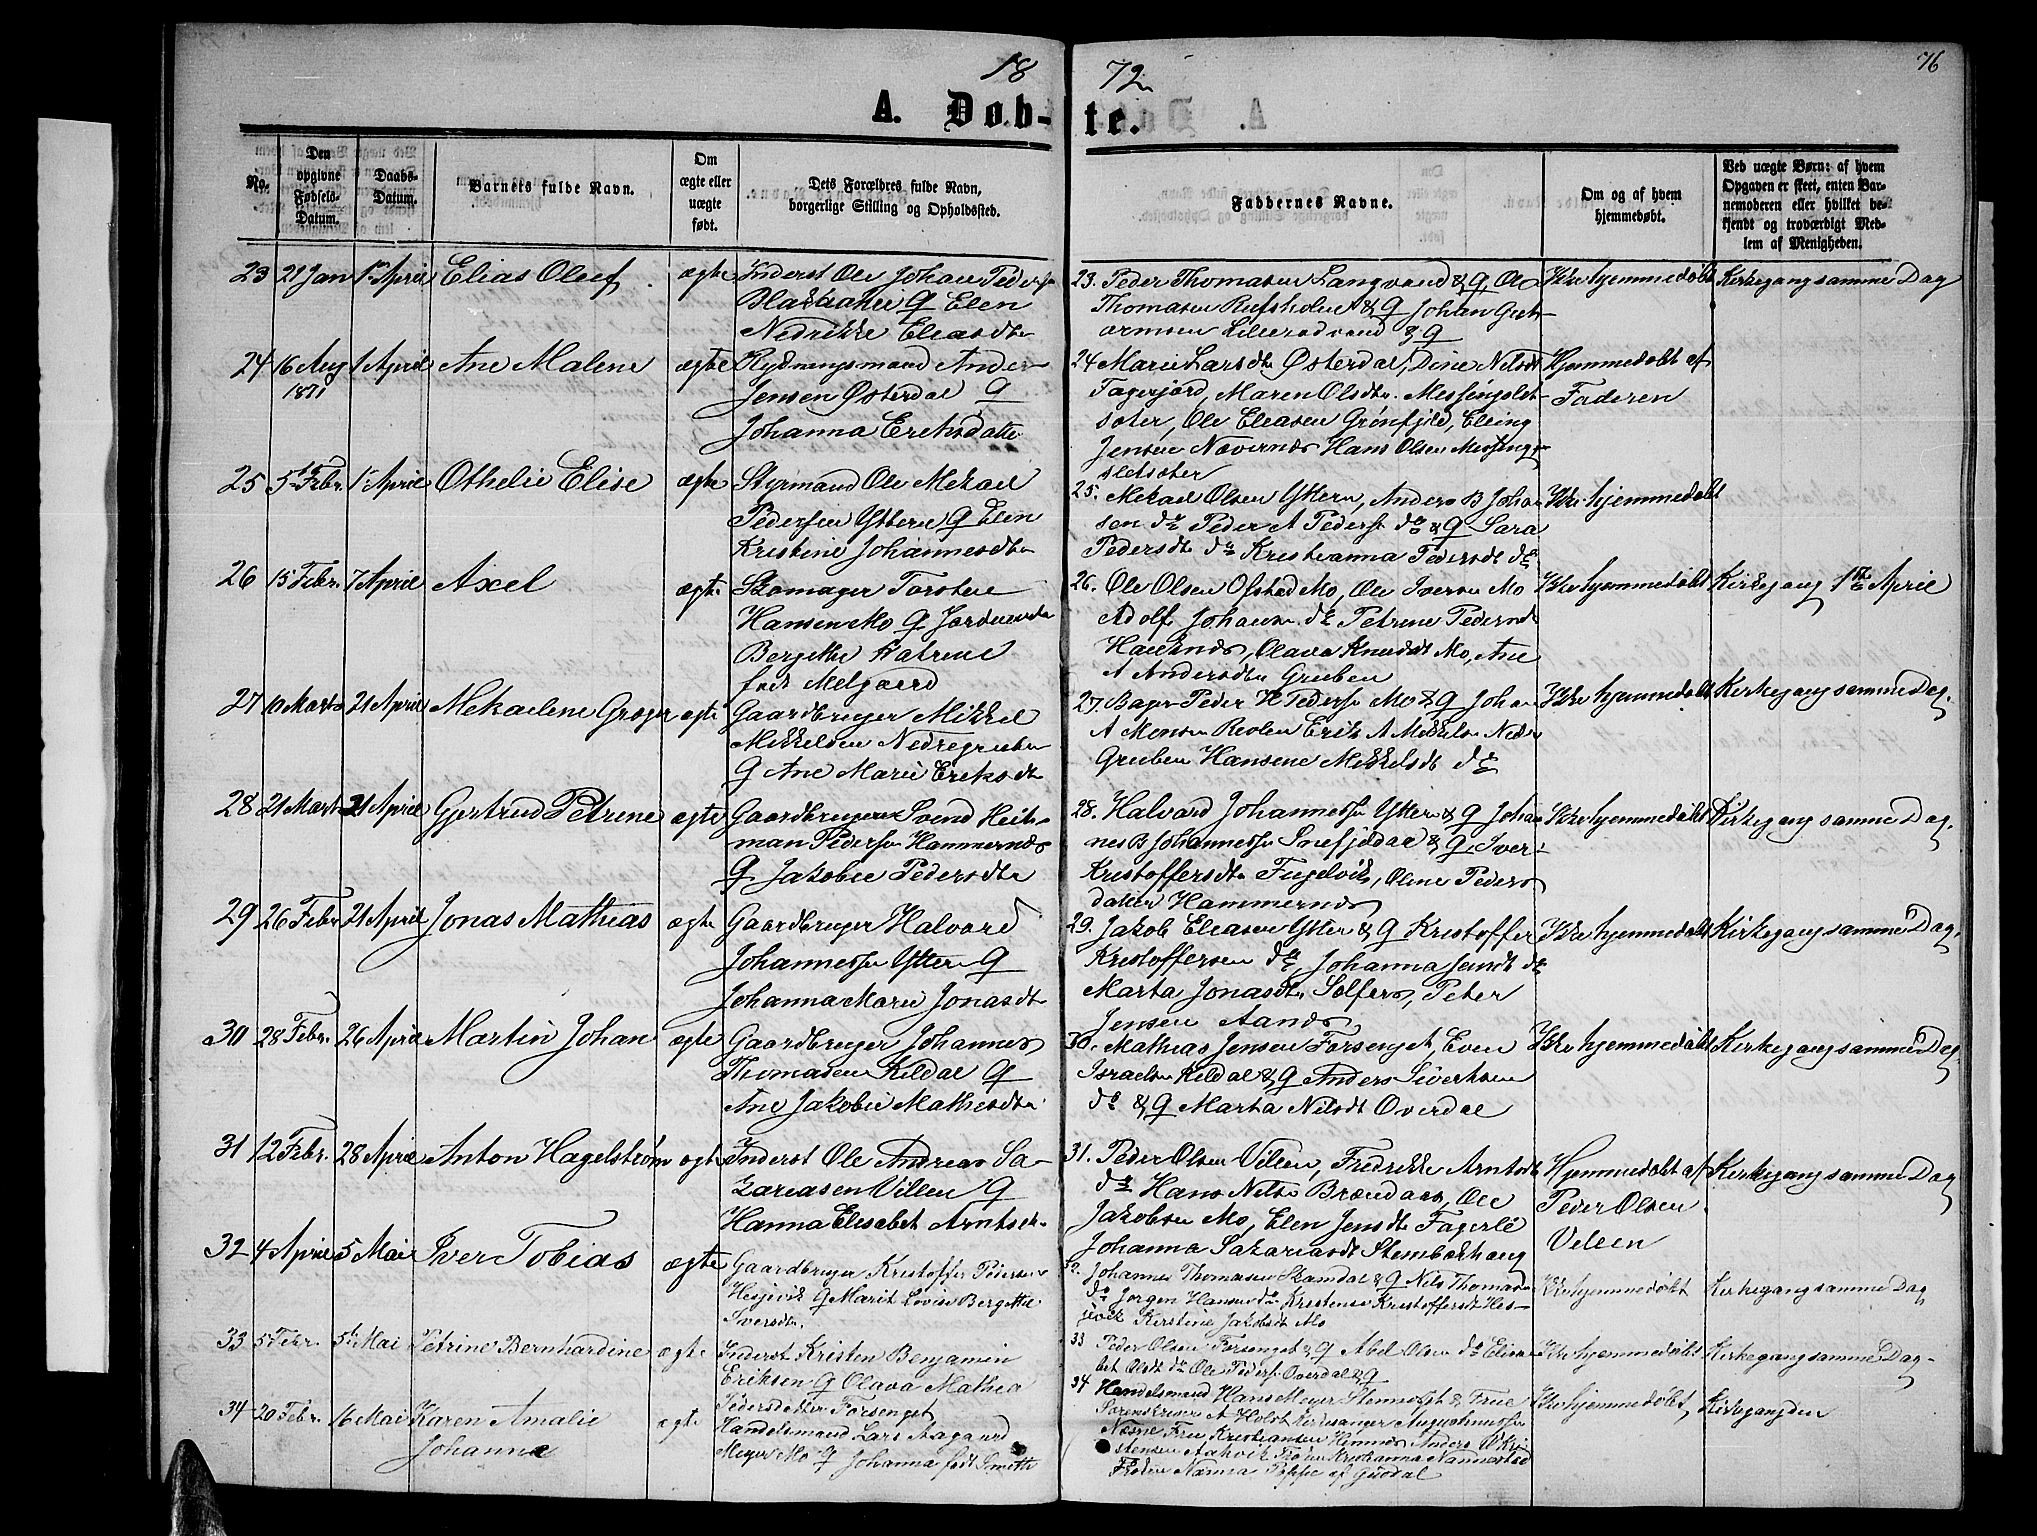 18 72
76
A. Døb-te.
No.
Den opgivne Fødsels-Datum.
Daabs-Datum.
Barnets fulde Navn.
Om ægte eller uægte født.
Dets Forældres fulde Navn, borgerlige Stilling og Opholdssted.
Faddernes Navne.
Om og af hvem hjemmedøbt.
Ved uægte Børn: af hvem Opgaven er skeet, enten Barnemoderen eller hvilket bekjendt og troværdigt Medlem af Menigheden.
23 21 Jan 1 April Elias Oluf ægte Inderst Ole Johan Peders
Elen
Nedrikke Eleasdtr
23. Peder Thomasen Langvand & Q, Ole
Thomasen Rufsholm & Q Johan Gut-
ormsen Lillerødvand & Q
Ikke hjemmedøbt Kirkegang samme Dag
24 16 Aug 1871 1 April Ane Malene ægte Rydningsmand Anders
Jensen Østerdal Q
Johanna Eriksdatter
24 Marie Larsdtr Østerdal, Dine Nilsdt
Fagerjord, Maren Olsdtr. Messingslet-
soter, Ole Eleasen Grønfjeld, Elling
Jensen Nævernes Hans Olsen Messing-
sletsoter
Hjemmedøbt af
Faderen
25 5 Febr. 1 April Othelie Elise ægte Styrmand Ole Mekael
Pedersen Ytteren Q Elen
Kristine Johannesdtr
25. Mekael Olsen Yttern, Anders B Johan
sen do Peder A Peders. do & Q Sara
Pedersdtr do Kristianna Pedersdt do
Ikke hjemmedøbt
26 15 Febr. 7 April Axel ægte Skomager Torsten
Hansen Mo Q
Bergitte Katrine
født Melgaard
26. Ole Olsen Ofsted Mo, Ole Iversen Mo
Adolf Johansen do Petrine Pedersdt
Hauknes, Olava Knudsdt Mo, Ane
A Andersdtr Gruben
Ikke hjemmedøbt Kirkegang 1ste April
27 10 Marts 21 April Mekaeline Gregor ægte Gaardbruger Mikkel
Mikkelsen Nedregruben
Q Ane Marie Eriksdt
27. Bager Peder H Peders. Mo & Q Johan
A Monsen Revlen Erik A Mikkels. Nedre
Gruben Hansine Mikkelsdt do
Ikke hjemmedøbt Kirkegang samme Dag.
28 21 Marts 21 April Gjertrud Petrine ægte Gaardbruger Svend Heit-
man Peders. Hammernes
Q Jakobie Pedersdtr
28. Halvard Johanness. Ytter & Q Johan
nes B Johanness. Snefjeldal & Q, Iver
Kristoffersdtr Fuglvik, Oline Peders
datter Hammernes
Ikke hjemmedøbt Kirkegang samme Dag.
29 26 Febr 21 April Jonas Mathias ægte Gaardbruger Halvard
Johannessen Ytteren Q
Johanna Marie Jonasdt
29. Jakob Eleasen Ytter & Q Kristoffer
Kristoffersen do, Johanna Jensdt do
Marta Jonasdtr Selfors, Peter
Jensen Aanes
Ikke hjemmedøbt Kirkegang samme Dag.
30 28 Febr. 26 April Martin Johan ægte Gaardbruger Johannes
Thomasen Kildal Q
Ane Jakobie Mathisdtr
30. Mathias Jensen Forsenget, Even
Israels. Kildal & Q Anders Sivertsen
do & Q Marta Nilsdt Overdal
Ikke hjemmedøbt Kirkegang samme Dag
31 12 Febr. 28 April Anton Hagelstrøm ægte Inderst Ole Andreas Sa-
kariasen Villen Q
Hanna Elisabet Arntsdt.
31. Peder Olsen Villen, Fredrikke Arntsdt
do Hans Nilsen Brændaas, Ole
Jakobsen Mo, Elen Jensdtr Fagerli
Johanna Sakariasdt Stenbækhaug
Hjemmedøbt af
Peder Olsen
Villen
Kirkegang samme Dag
32 4 April 5 Mai Iver Tobias ægte Gaardbruger Kristoffer Pedersen
Hesjevik Q Marit Lovise Bergitte
Iversdtr.
32. Johannes Thomasen Skamdal & Q Nils Thomas
do Jørgen Hansen do Kristense Kristoffersdt Hes-
jevik Kirstine Jakobsdt Mo
Ikke hjemmedøbt Kirkegang samme Dag
33 5 Febr. 5 Mai Petrine Bernhardine ægte Inderst Kristen Benjamin
Eriksen Q Olava Mathea
Pedersdatter Forsenget
33 Peder Olsen Forsenget & Q Abel Olsen do Elisa
bet Olsdt do Ole Peders. Overdal & Q
Ikke hjemmedøbt Kirkegang samme Dag-
34 20 Febr. 16 Mai Karen Amalie
Johanna
ægte Handelsmand Lars Aagaard
Meyer Mo Q Johanna født Smith
34 Handelsmand Hans Meyer Stenneset & Frue
A Holst Kirkesanger
Nesne Frue Kristiansen Hemnes Anders
stensen Aakvik Frøken Kristianna Nannestad
Frøken Nanna Poppe af Gusdal
Ikke hjemmedøbt, Kirkegang den